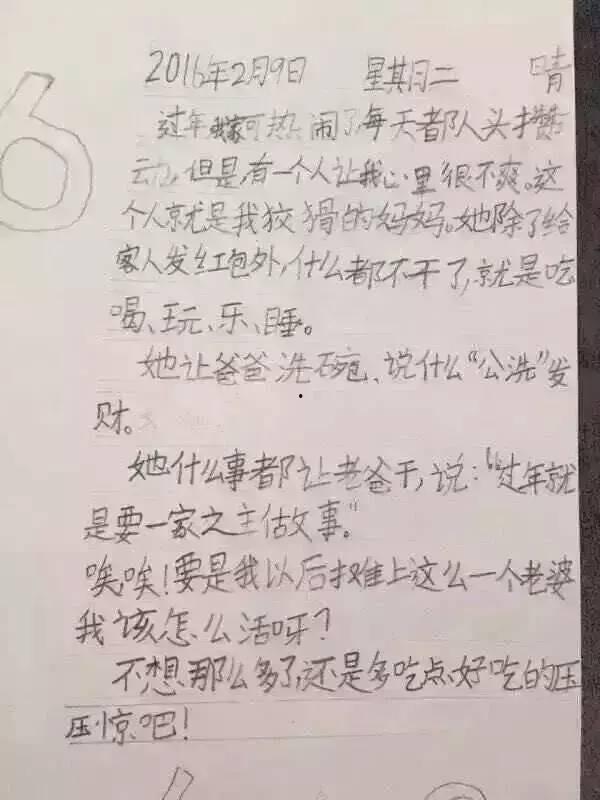 2016年2月9日 星期二 晴
过年我家可热闹了,每天都人头攒
动,但是,有一个人让我心里很不爽。这
个人就是我狡猾的妈妈。她除了给
客人发红包外,什么都不干了,就是吃
喝、玩、乐、睡。
她让爸爸洗碗、说什么“公洗”发
财。
她什么事都让老爸干,说:“过年就
是要一家之主做故事。”
唉,唉!要是我以后摊上这么一个老婆
我该怎么活呀?
不想那么多了,还是多吃点好吃的压
压惊吧!
6